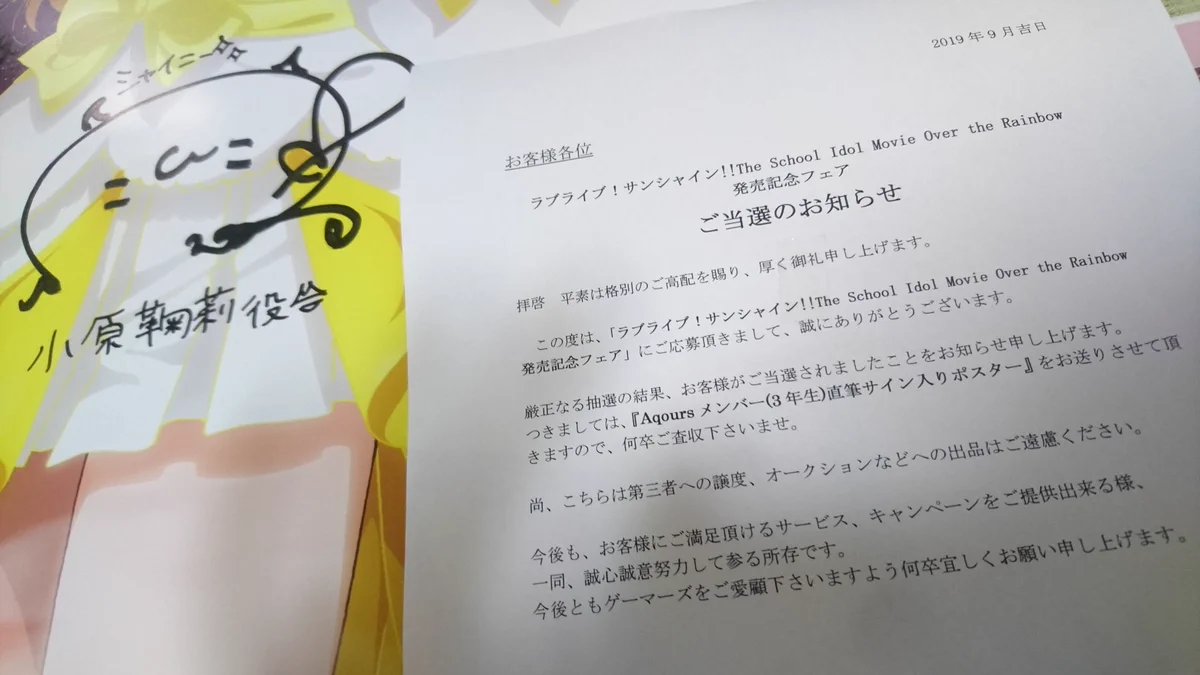 シャイニー
小原鞠莉役
2019年9月吉日
お客様各位
ラブライブ!サンシャイン!!The School Idol Movie Over the Rainbow
発売記念フェア
ご当選のお知らせ
拝啓 平素は格別のご高配を賜り、厚く御礼申し上げます。
この度は、「ラブライブ!サンシャイン!!The School Idol Movie Over the Rainbow
発売記念フェア」にご応募頂きまして、誠にありがとうございます。
厳正なる抽選の結果、お客様がご当選されましたことをお知らせ申し上げます。
つきましては、『Aqoursメンバー(3年生)直筆サイン入りポスター』をお送りさせて頂
きますので、何卒ご査収下さいませ。
尚、こちらは第三者への譲度、オークションなどへの出品はご遠慮ください。
今後も、お客様にご満足頂けるサービス、キャンペーンをご提供出来る様、
一同、誠心誠意努力して参る所存です。
今後ともゲーマーズをご愛顧下さいますよう何卒宜しくお願い申し上げます。